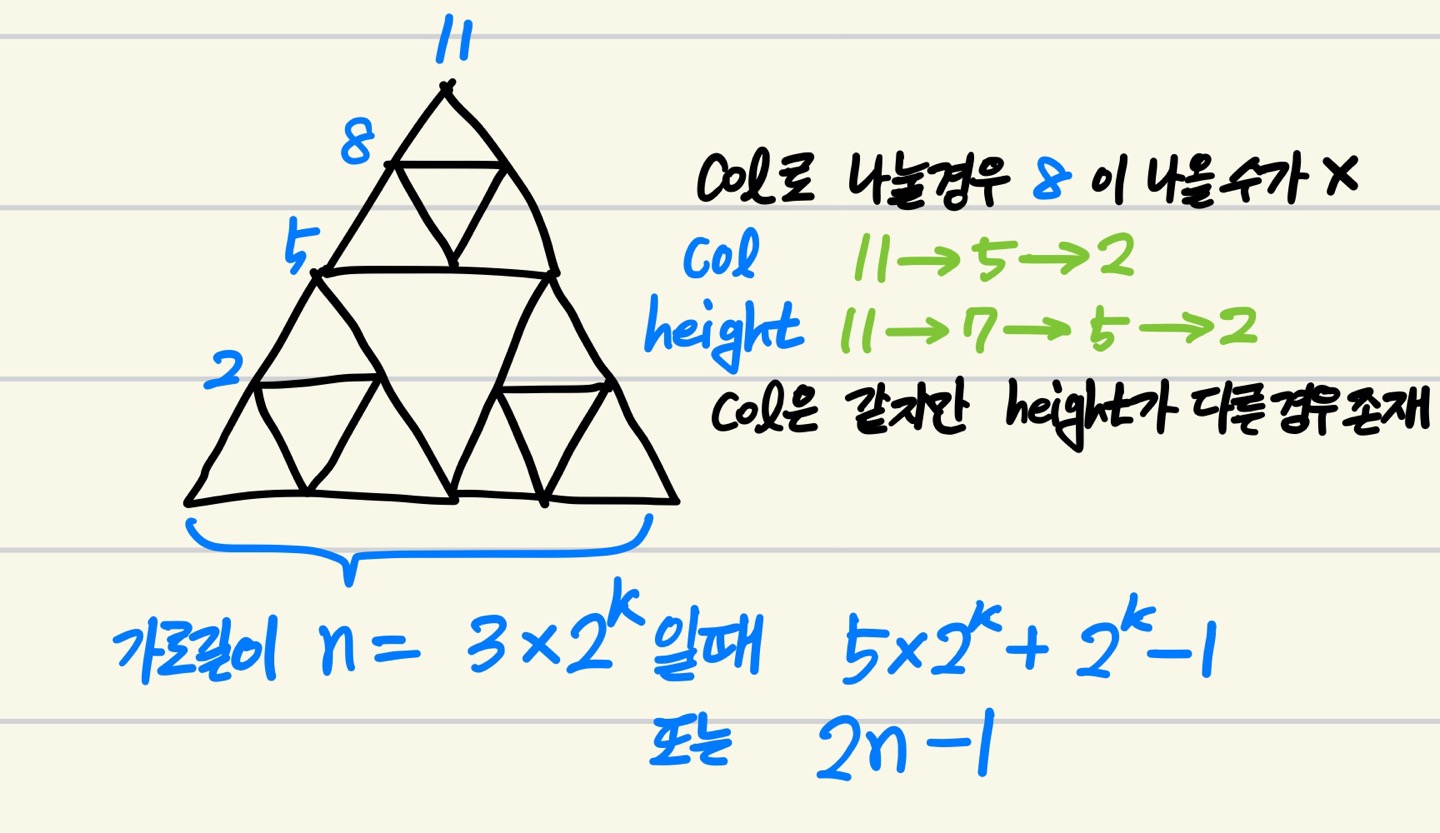 11
8
5
2
Col로 나눌경우 8 이 나올수가 X
Col 11→5→2
height 11→7→5→2
Col은 같지만 height가 다른경우존재
가로길이 n = 3×2^k 일때 5×2^k + 2^k-1
또는 2n-1